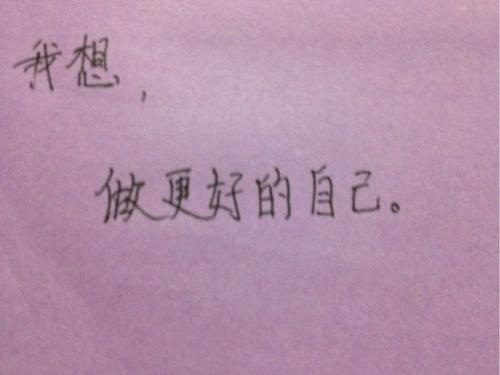 我想，
做更好的自己。